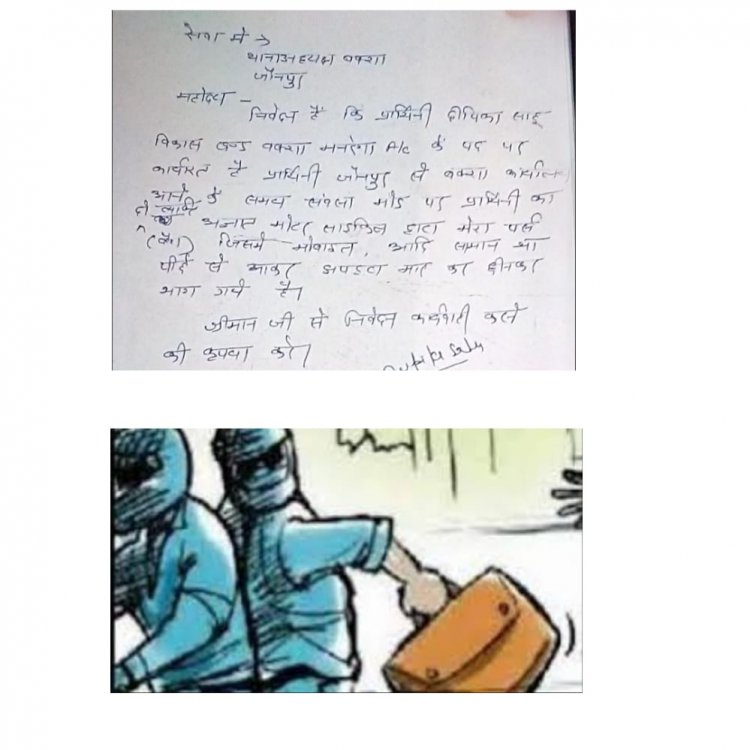 सेवा में →
थानाअध्यक्ष बक्शा
जौनपुर
महोदय -
निवेदन है कि प्रार्थिनी दीपिका साहू
विकास खण्ड बक्शा मनरेगा A/c के पद पर
कार्यरत है प्रार्थिनी जौनपुर से बक्शा कार्यालय
आने के समय मोड़ पर प्रार्थिनी का
अज्ञात मोटर साइकिल द्वारा मेरा पर्स
(बैग) जिसमे मोबाइल, आदि समान था
पीछे से आकर झपट्टा मार कर छीनकर
भाग गये है।
श्रीमान जी से निवेदन कार्यवाही करने
की कृपया करे।
Dipika Sahu